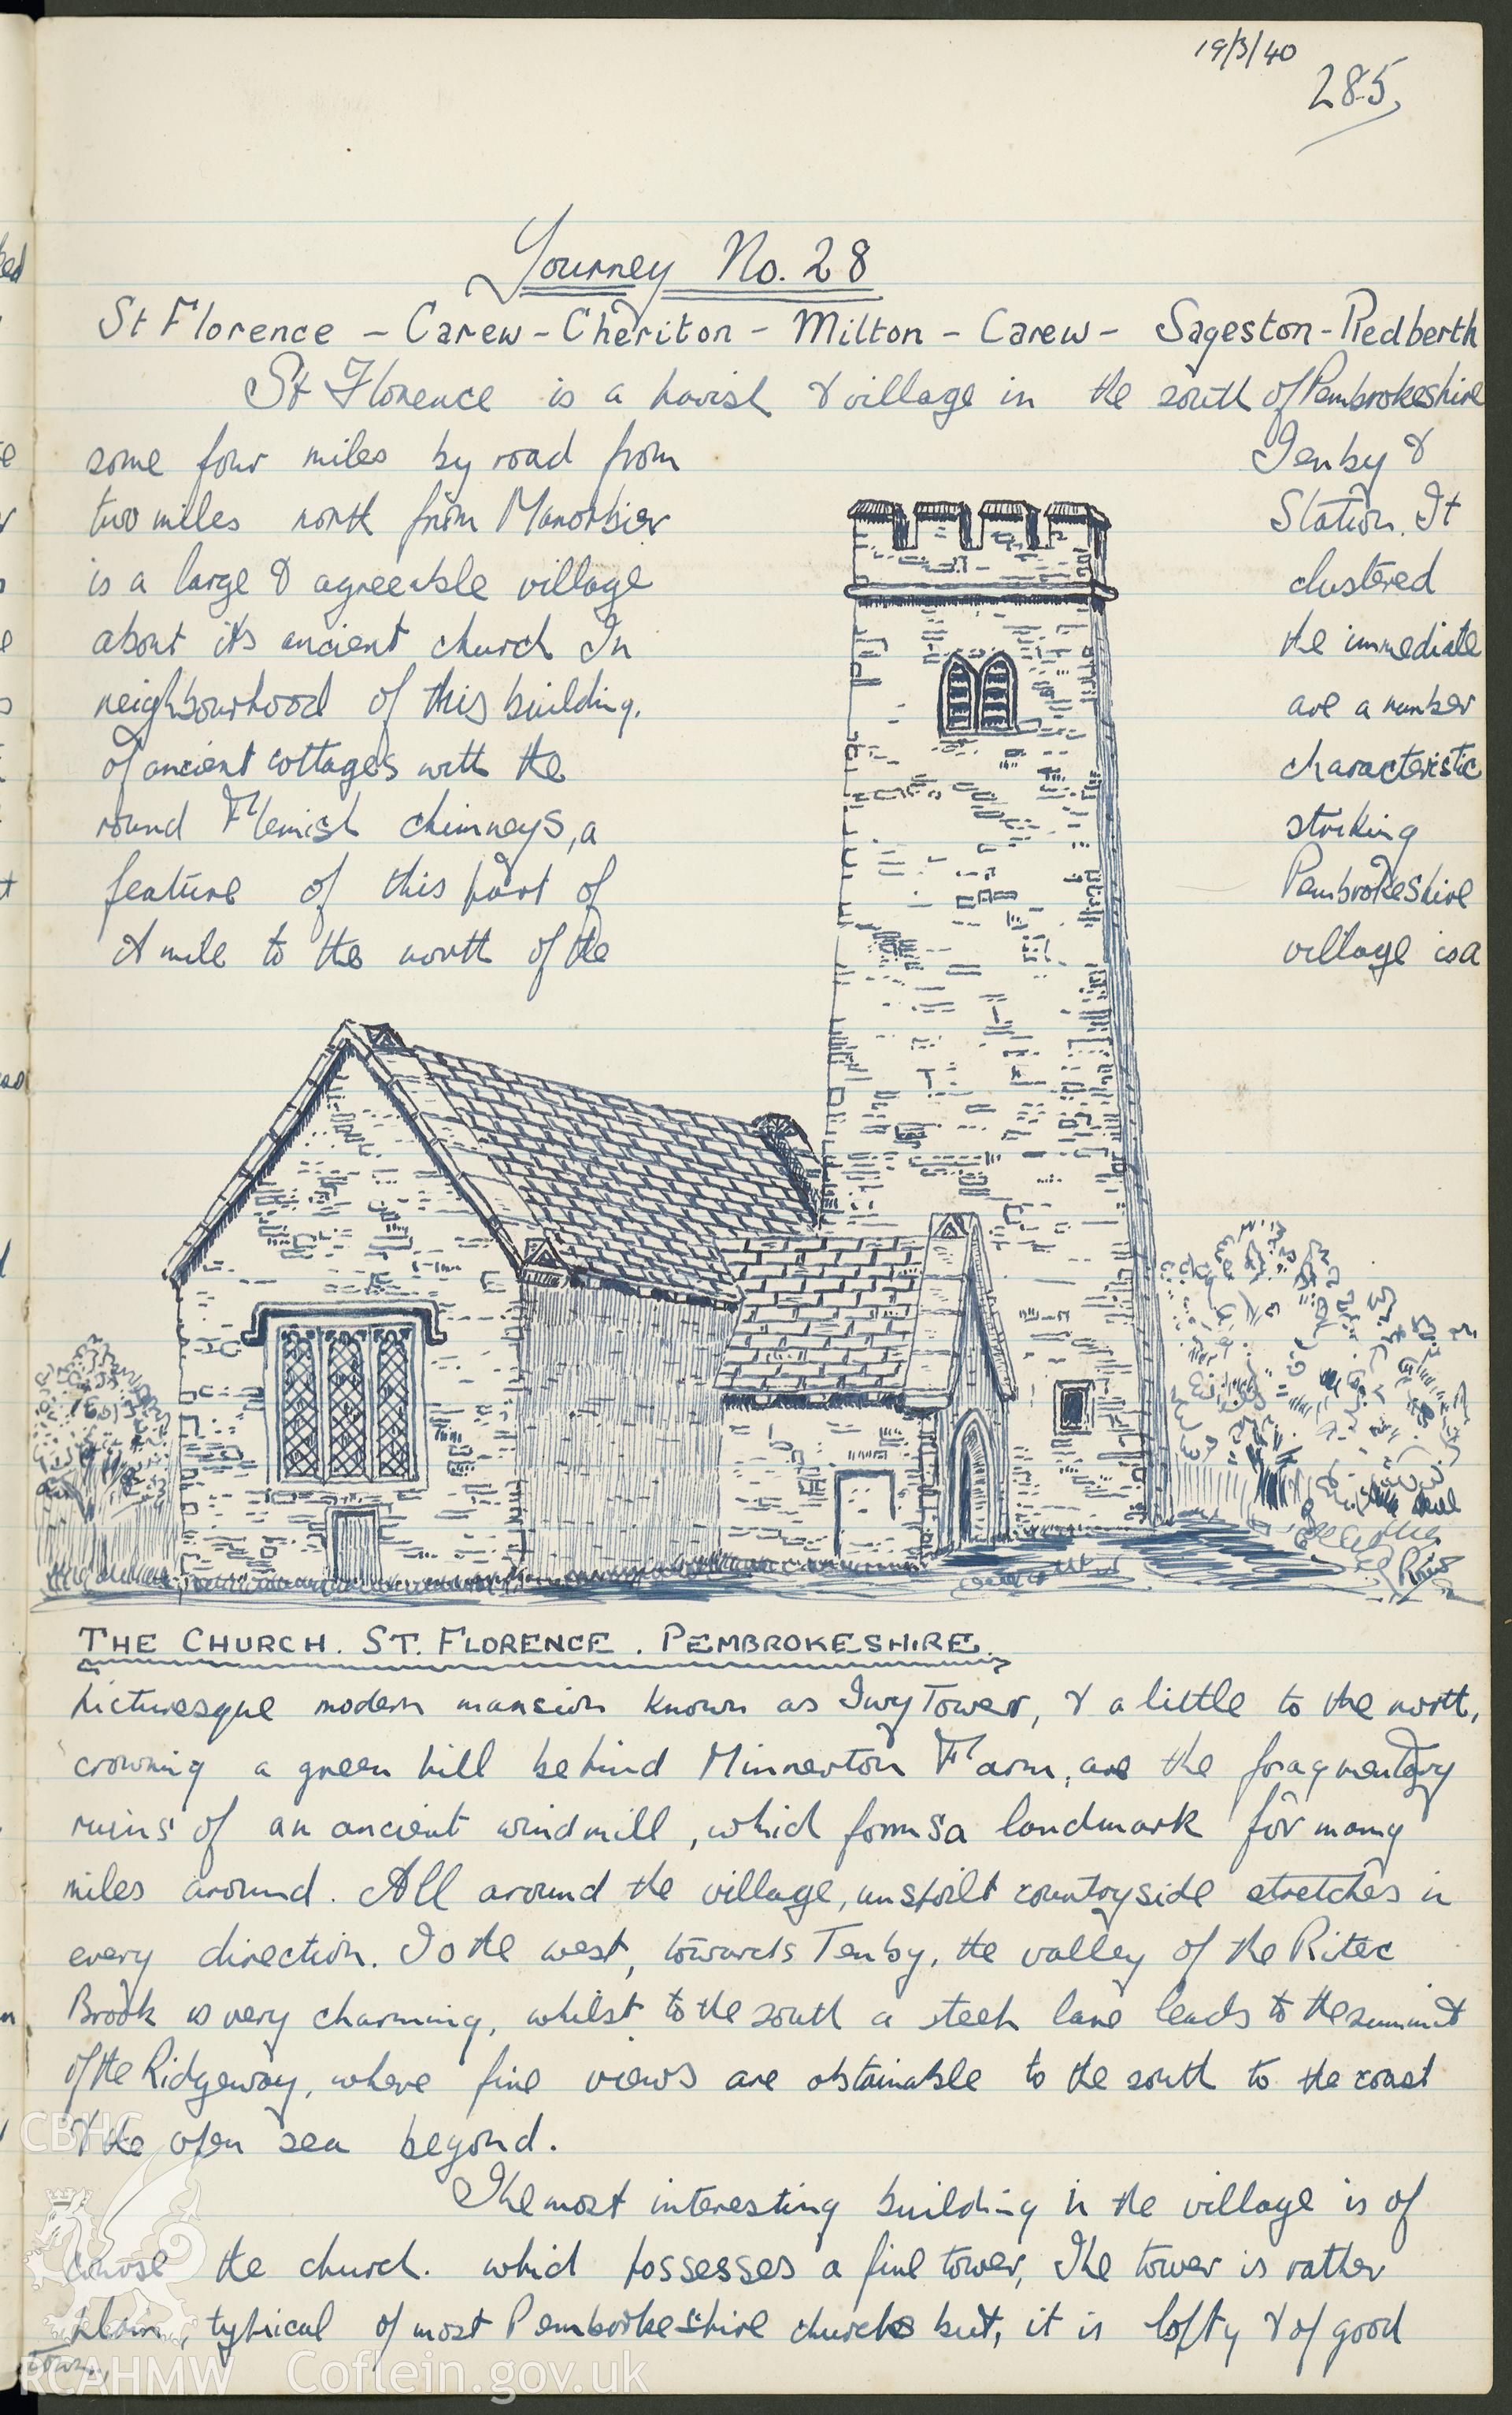 19/3/40
285,
Journey No. 28
St Florence - Carew - Cheriton - Milton - Carew - Sageston - Redberth
St Florence is a parish & village in the south of Pembrokeshire
some four miles by road from Tenby &
two miles north from Manorbier Station. It
is a large & agreeable village clustered
about its ancient church In the immediate
neighbourhood of this building. are a number
of ancient cottages with the characteristic
round Flemish chimneys, a striking
feature of this part of Pembrokeshire
A mile to the north of the village is a
THE CHURCH. ST. FLORENCE. PEMBROKESHIRE.
picturesque modern mansion known as Ivy Tower, & a little to the north,
crowning a green hill behind Minnerton Farm, are the fragmentary
ruins of an ancient windmill, which forms a landmark for many
miles around. All around the village, unspoilt countryside stretches in
every direction. To the west, towards Tenby, the valley of the Ritec
Brook is very charming, whilst to the south a steep lane leads to the summit
of the Ridgeway, where fine views are obtainable to the south to the coast
& the open sea beyond.
The most interesting building in the village is of
course the church. which possesses a fine tower, The tower is rather
plain, typical of most Pembrokeshire churches but, it is lofty & of good
CBHC
RCAHMW Coflein.gov.uk